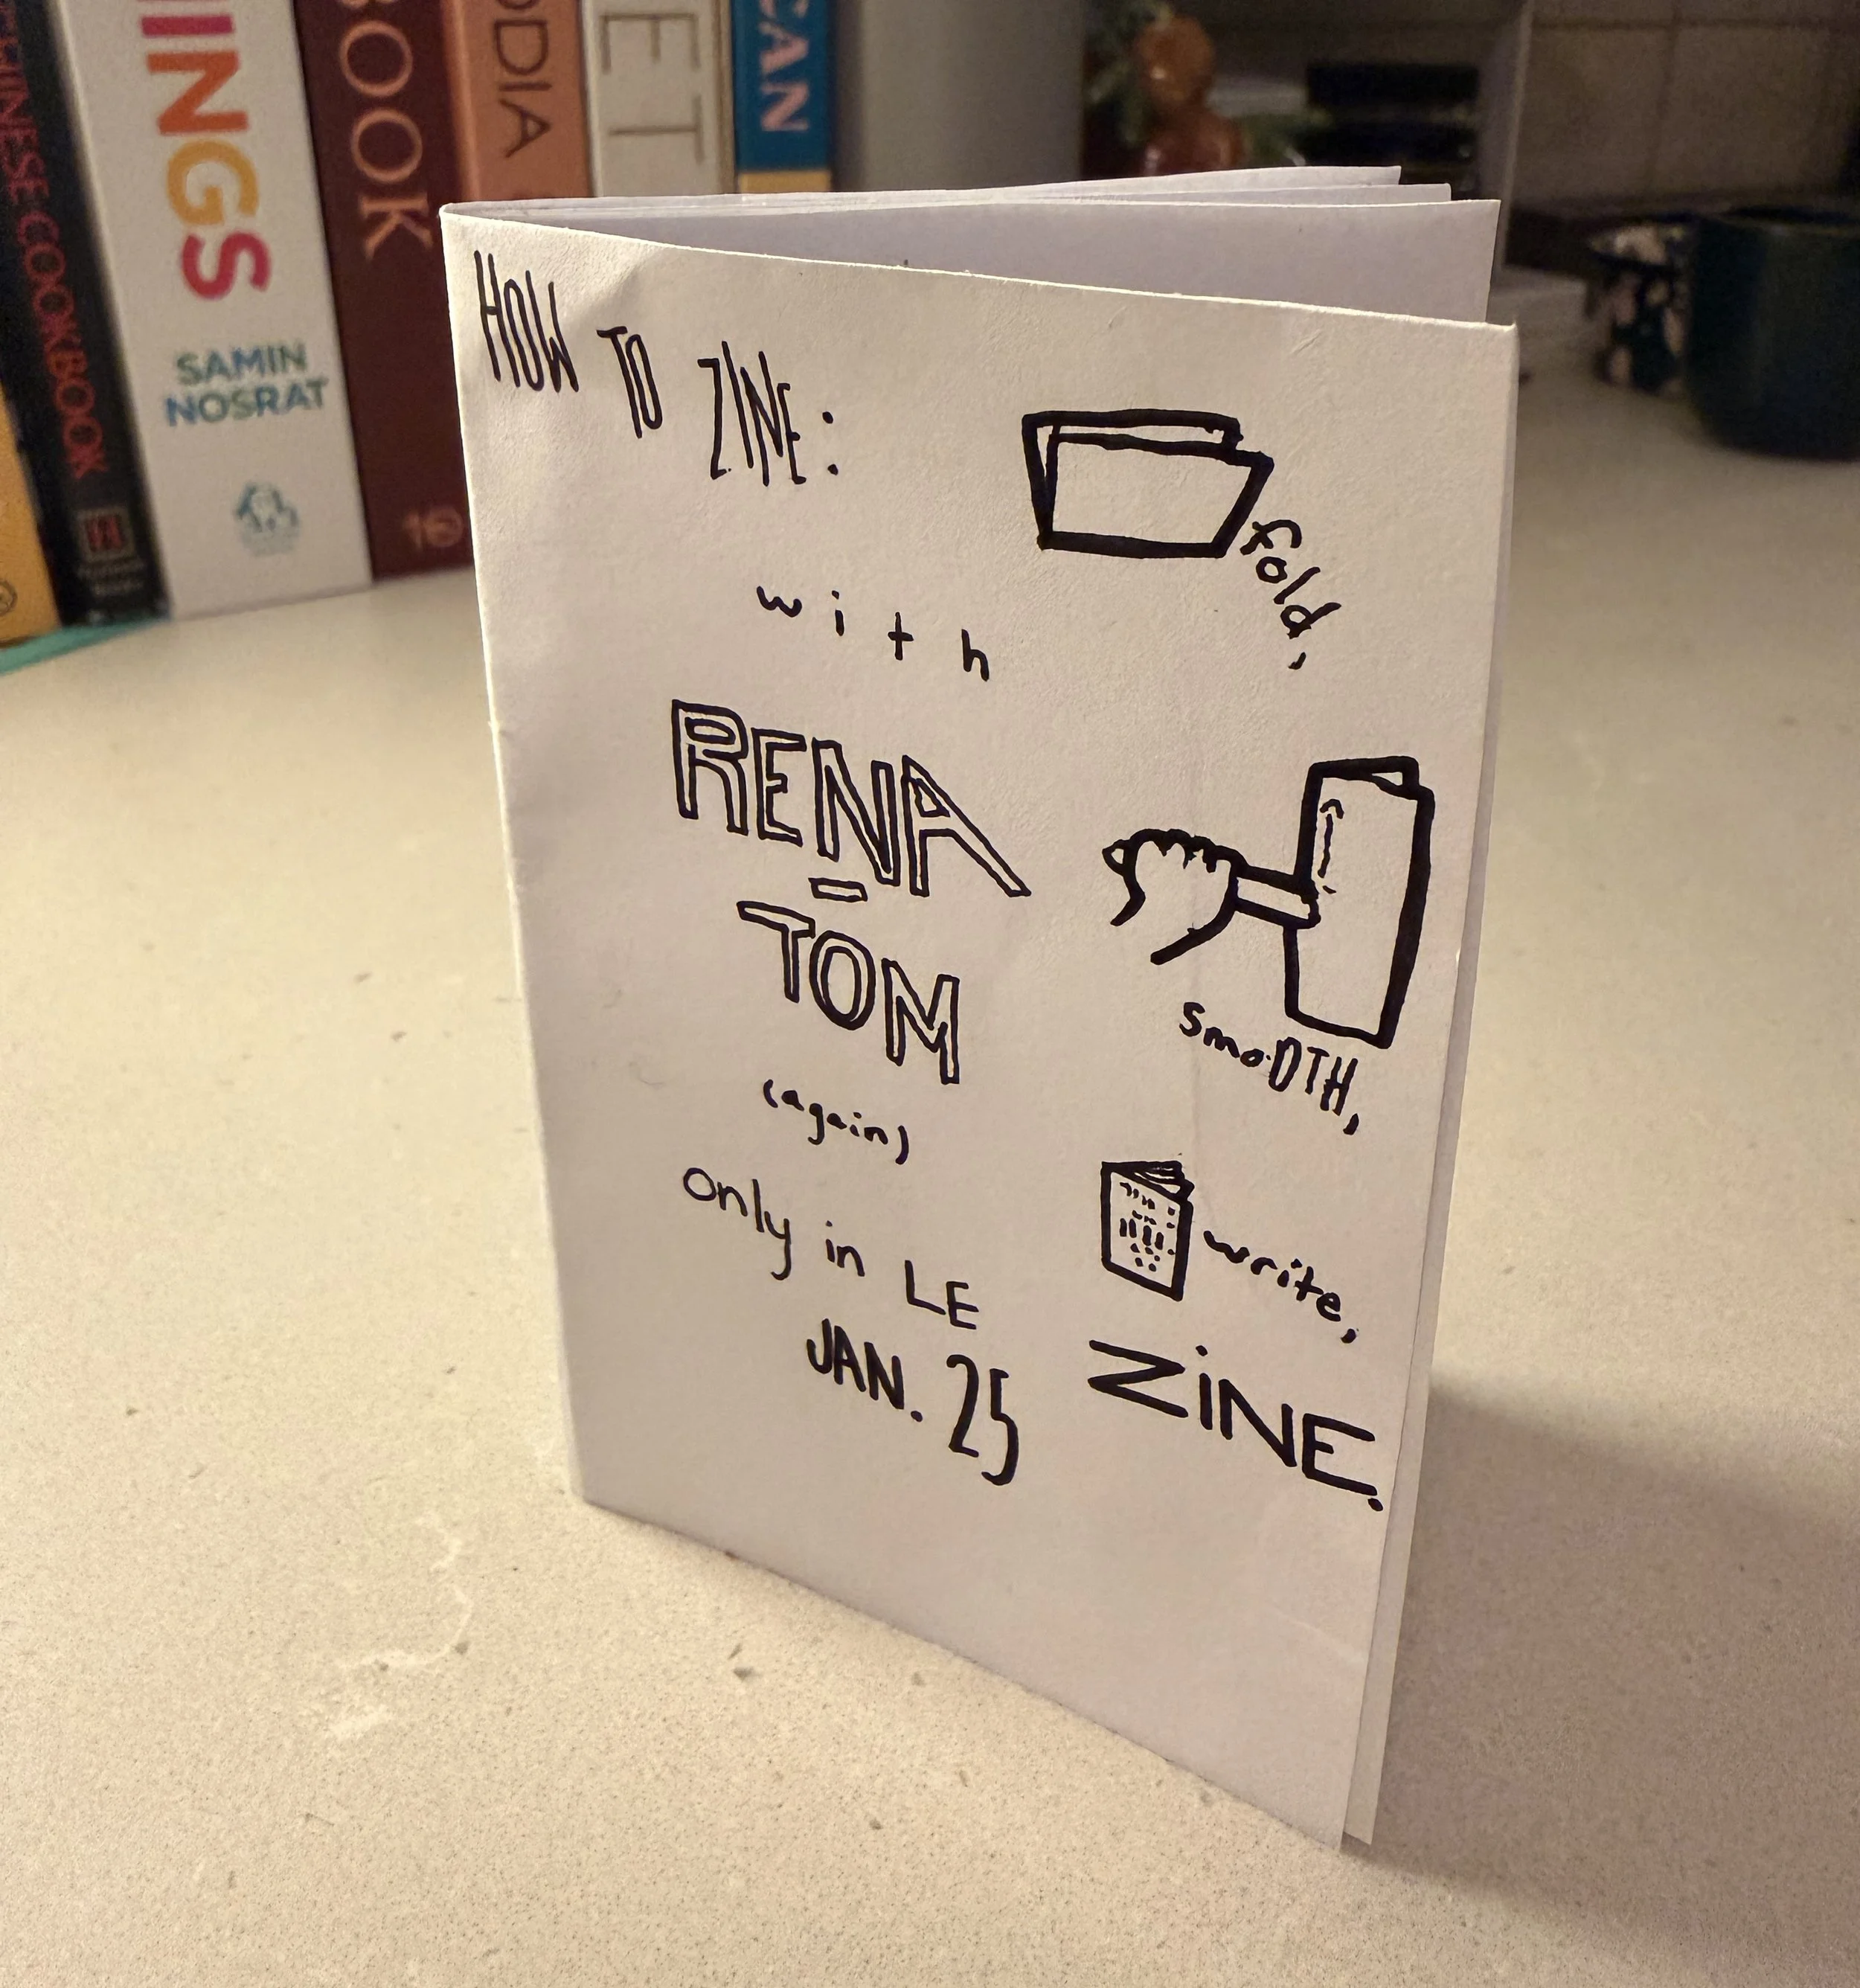 CHINESE COOKBOOK
INGS
SAMIN
NOSRAT
BOOK
ODIA
ET
CAN
HOW TO ZINE:
with
RENA
TOM
(again)
only in LE
JAN. 25
fold,
smoOTH,
write,
ZiNE.